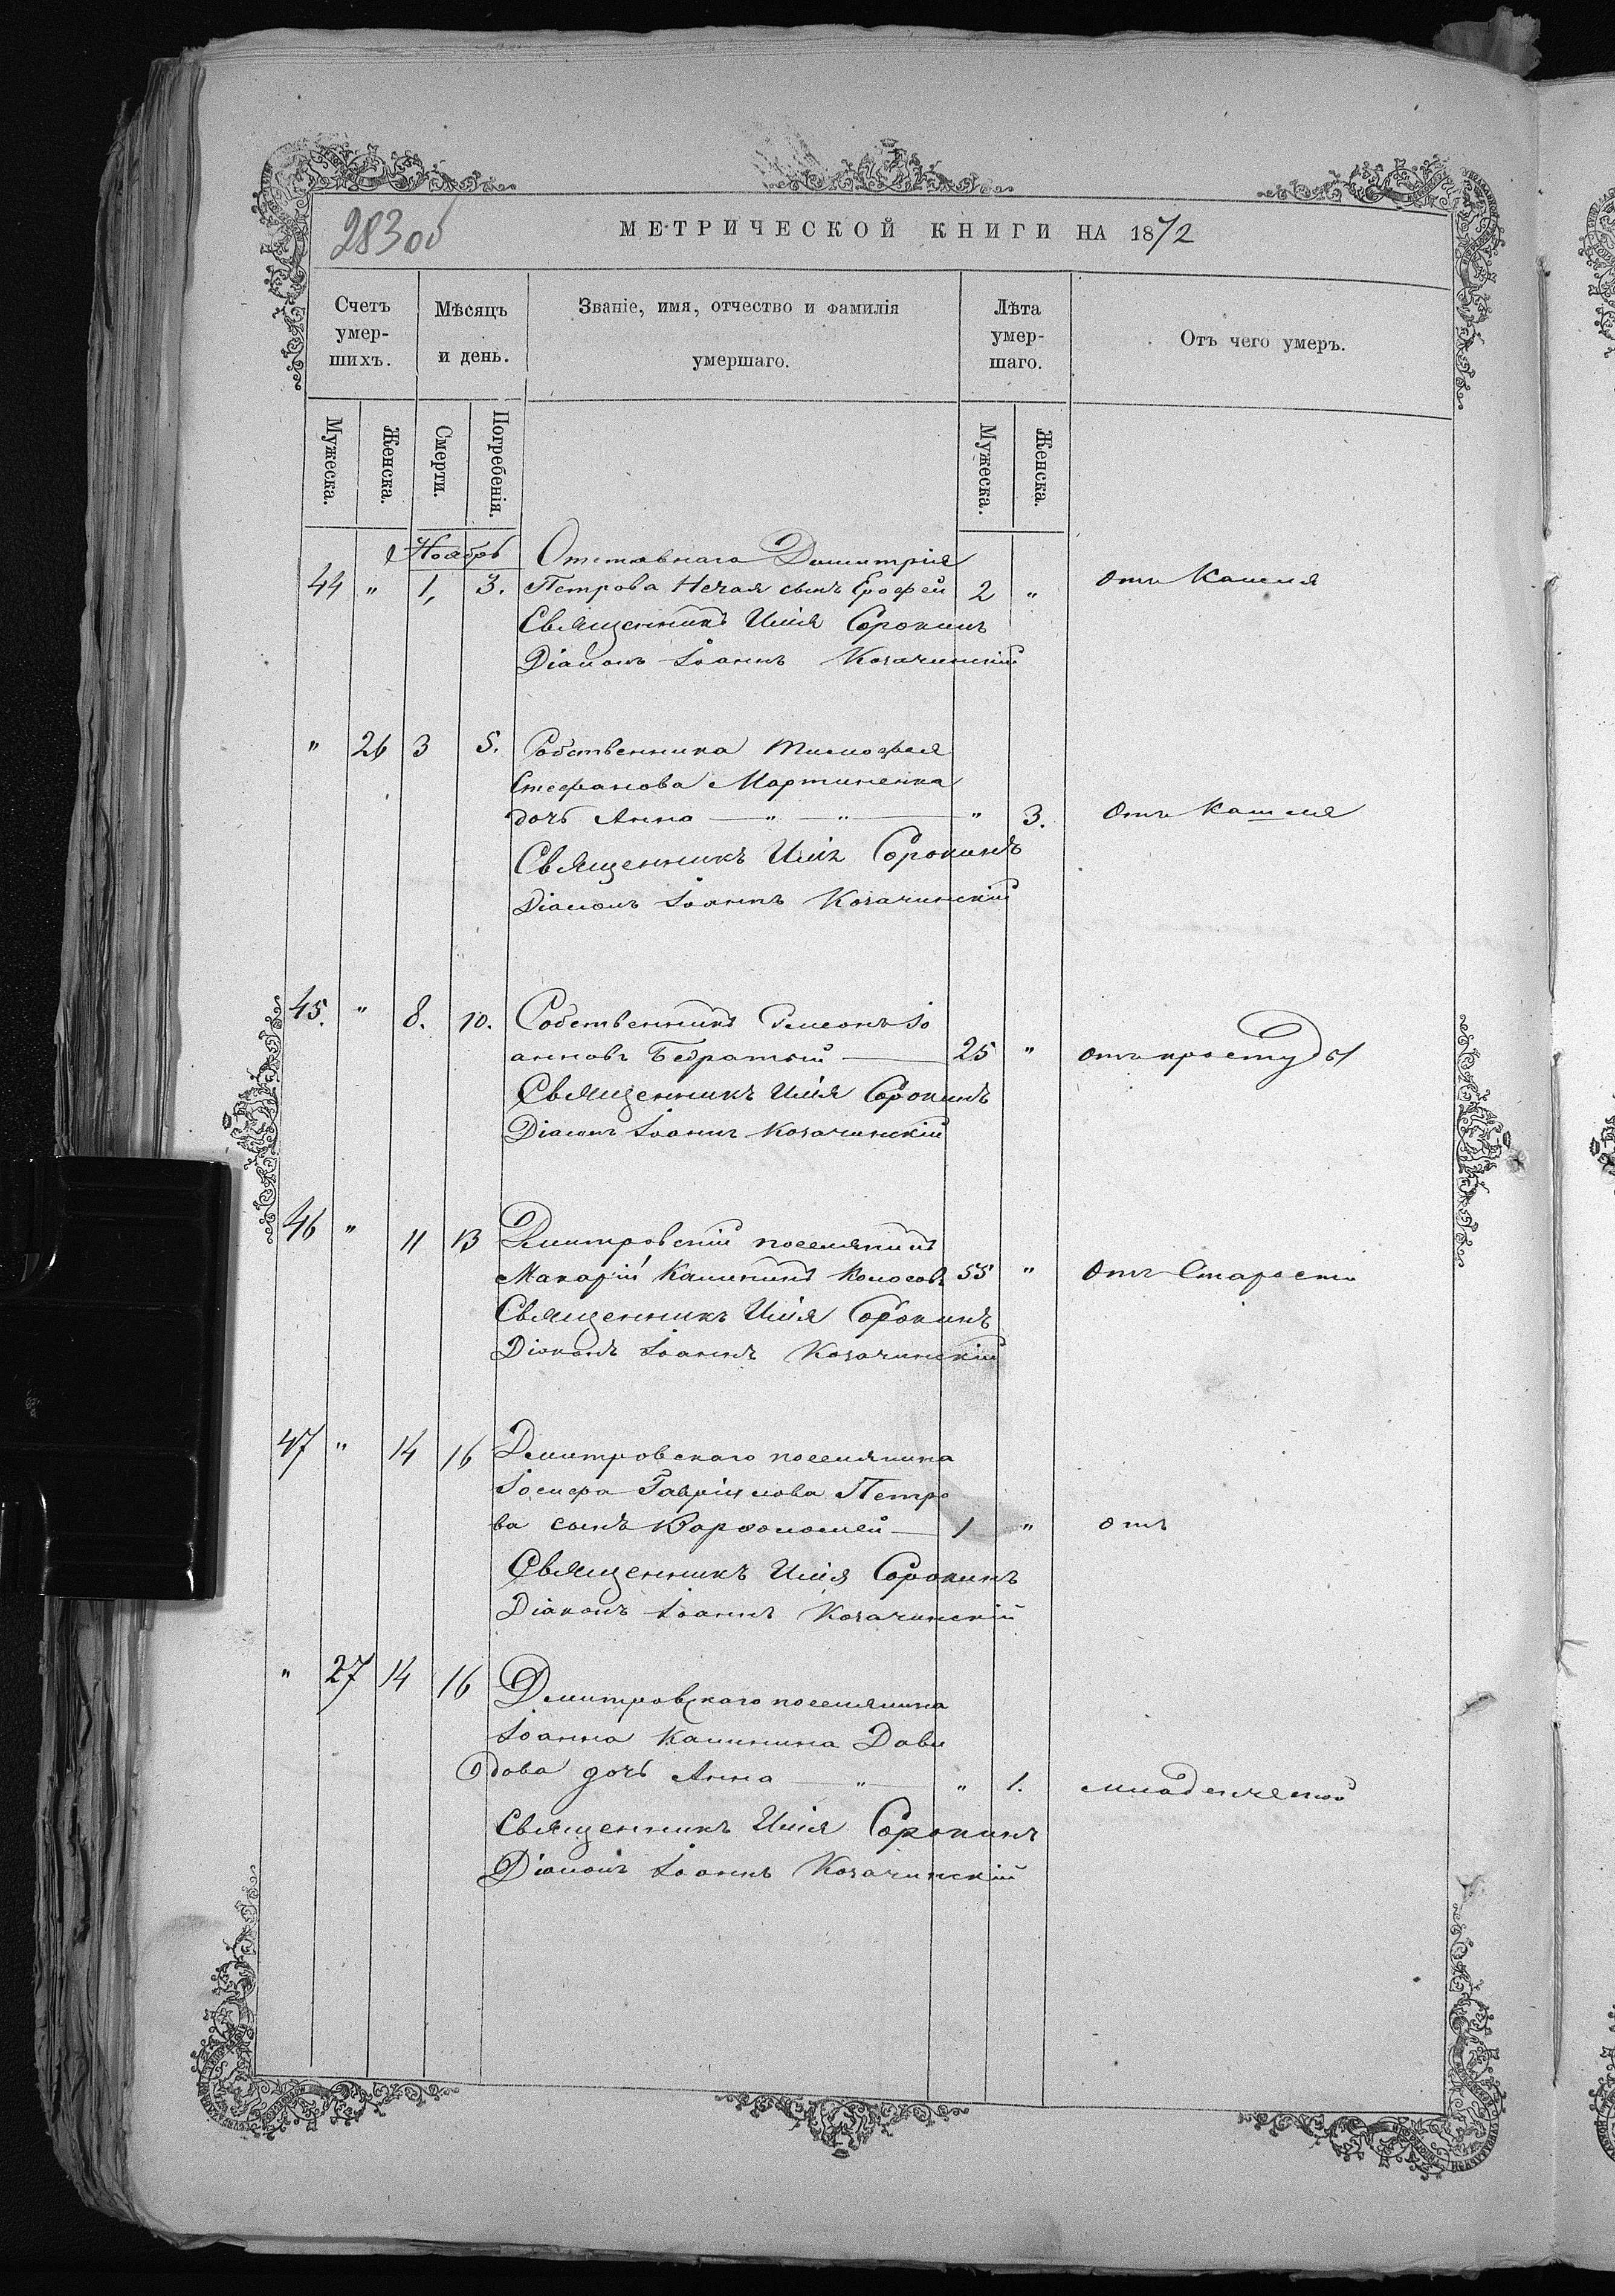 283об
МЕТРИЧЕСКОЙ КНИГИ НА 1872
Счетъ умер-шихъ.
Мѣсяцъ и день.
Званіе, имя, отчество и фамилія умершаго.
Лѣта умер-шаго.
Отъ чего умеръ.
Мужеска.
Женска.
Смерти.
Погребенія.
Мужеска.
Женска.
Ноябрь
Отставнаго Димитрія
44 " 1, 3. Петрова Нечая сынъ Ерофей 2 " отъ Кашля
Священникъ Илія Сорокинъ
Діаконъ Іоаннъ Козачинскій
" 26 3 5. Собственника Тимофея
Стефанова Мартиненка
дочь Анна — " — " — " 3. Отъ Кашля
Священникъ Илія Сорокинъ
Діаконъ Іоаннъ Козачинскій
45. " 8. 10. Собственникъ Симеонъ Іо
анновъ Бедратый — 25 " отъ простуды
Священникъ Илія Сорокинъ
Діаконъ Іоаннъ Козачинскій
46 " 11 13 Дмитровскій поселянинъ
Макарій Калининъ Колосовъ 55 " Отъ Старости
Священникъ Илія Сорокинъ
Діаконъ Іоаннъ Козачинскій
47 " 14 16 Дмитровскаго поселянина
Іосифа Гавріилова Петро
ва сынъ Варфоломей — 1 " отъ
Священникъ Илія Сорокинъ
Діаконъ Іоаннъ Козачинскій
" 27 14 16 Дмитровскаго поселянина
Іоанна Калинина Дави
дова дочь Анна — " — " 1. младенческой
Священникъ Илія Сорокинъ
Діаконъ Іоаннъ Козачинскій